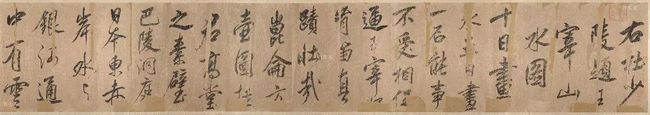 右杜少
陵題王
宰山
水圖
十日畫
水五日畫
一石能事
不受相促
逼王宰始
肯留真
蹟壯哉
崑崙方
壺圖掛
君高堂
之素壁
巴陵洞庭
日本東赤
岸水與
銀河通
中有雲